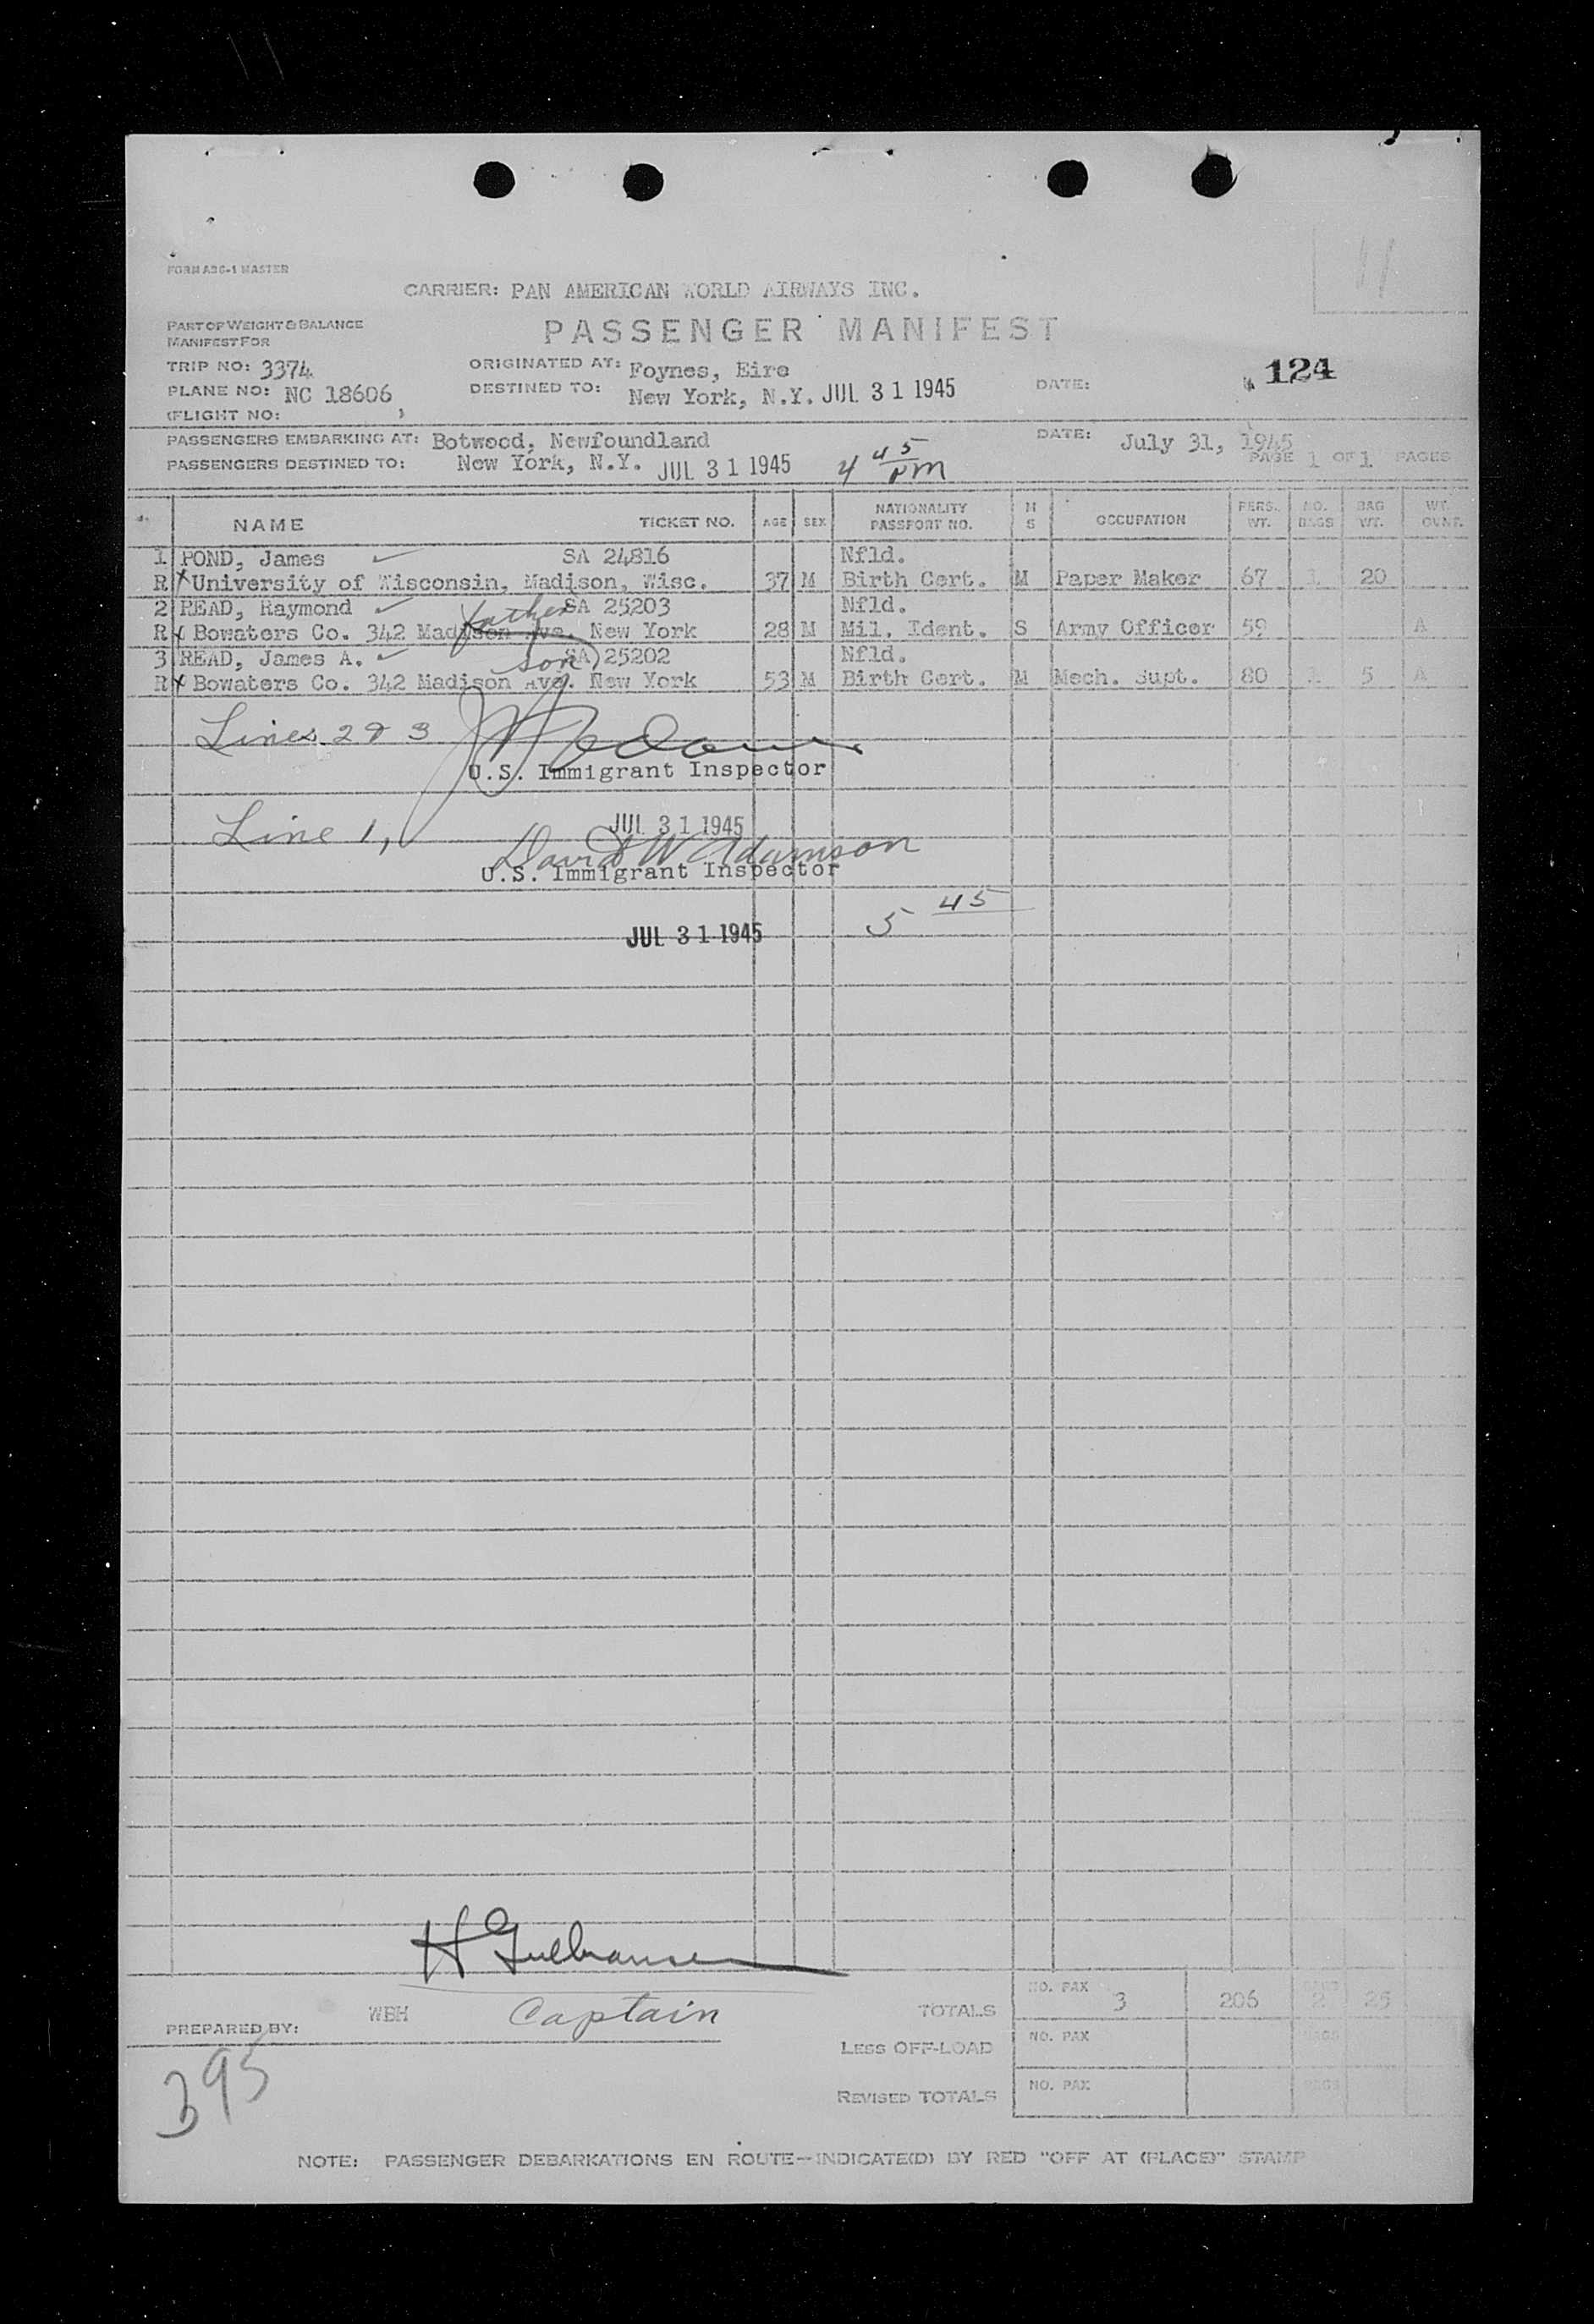 FORM ABC-1 MASTER
CARRIER: PAN AMERICAN WORLD AIRWAYS INC.
PART OF WEIGHT & BALANCE
MANIFEST FOR
PASSENGER MANIFEST
TRIP NO: 3374
ORIGINATED AT: Foynes, Eire
124
PLANE NO: NC 18606
DESTINED TO: New York, N.Y. JUL 31 1945
DATE:
(FLIGHT NO: )
PASSENGERS EMBARKING AT: Botwood, Newfoundland
DATE: July 31, 1945
PASSENGERS DESTINED TO: New York, N.Y. JUL 31 1945 4 45 PM
PAGE 1 OF 1 PAGES
NAME TICKET NO. AGE SEX NATIONALITY PASSPORT NO. M S OCCUPATION PERS. WT. NO. BAGS BAG WT. WT. OVNT.
1 POND, James SA 24816 Nfld.
R x University of Wisconsin, Madison, Wisc. 37 M Birth Cert. M Paper Maker 67 1 20
2 READ, Raymond father SA 25203 Nfld.
R x Bowaters Co. 342 Madison Ave. New York 28 M Mil. Ident. S Army Officer 59 A
3 READ, James A. son SA 25202 Nfld.
R x Bowaters Co. 342 Madison Ave. New York 53 M Birth Cert. M Mech. Supt. 80 1 5 A
Lines 2 & 3
U.S. Immigrant Inspector
JUL 31 1945
Line 1,
David W Adamson
U.S. Immigrant Inspector
5 45
JUL 31 1945
H
NO. PAX 3 206 2 25
WBH Captain TOTALS
PREPARED BY:
LESS OFF-LOAD NO. PAX BAGS
395
REVISED TOTALS NO. PAX BAGS
NOTE: PASSENGER DEBARKATIONS EN ROUTE—INDICATE(D) BY RED "OFF AT (PLACE)" STAMP